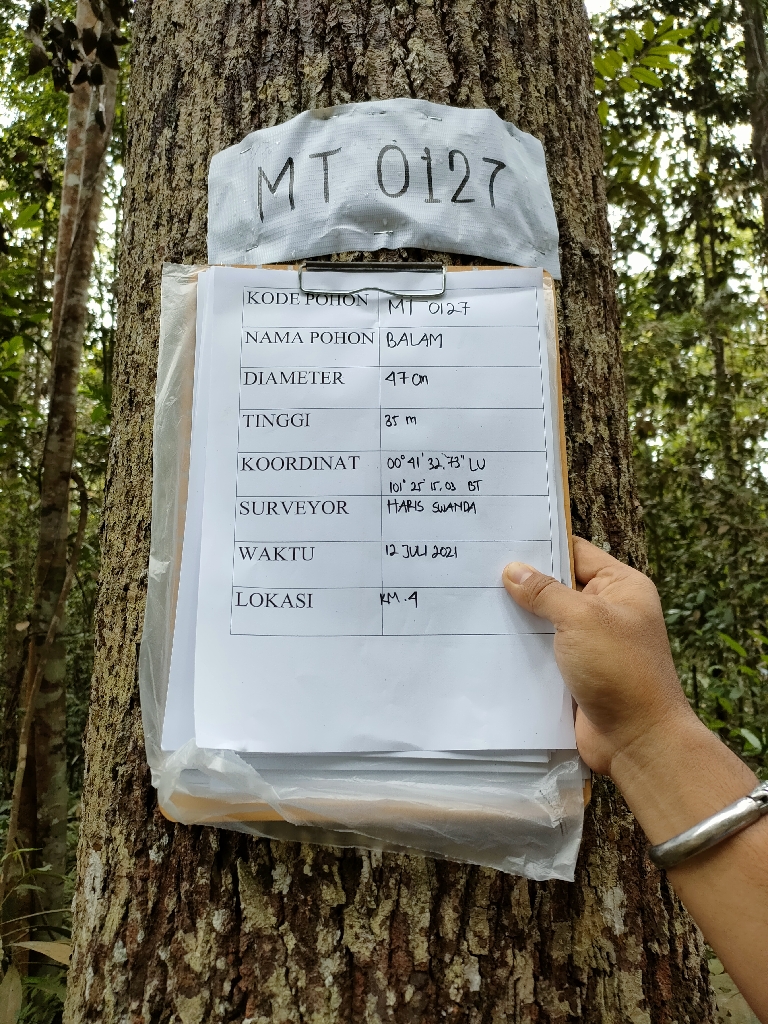 MT 0127
KODE POHON MT 0127
NAMA POHON BALAM
DIAMETER 47 cm
TINGGI 35 m
KOORDINAT 00° 41' 32,73" LU
101° 25' 15,03 BT
SURVEYOR HARIS SUANDA
WAKTU 12 JULI 2021
LOKASI KM.4